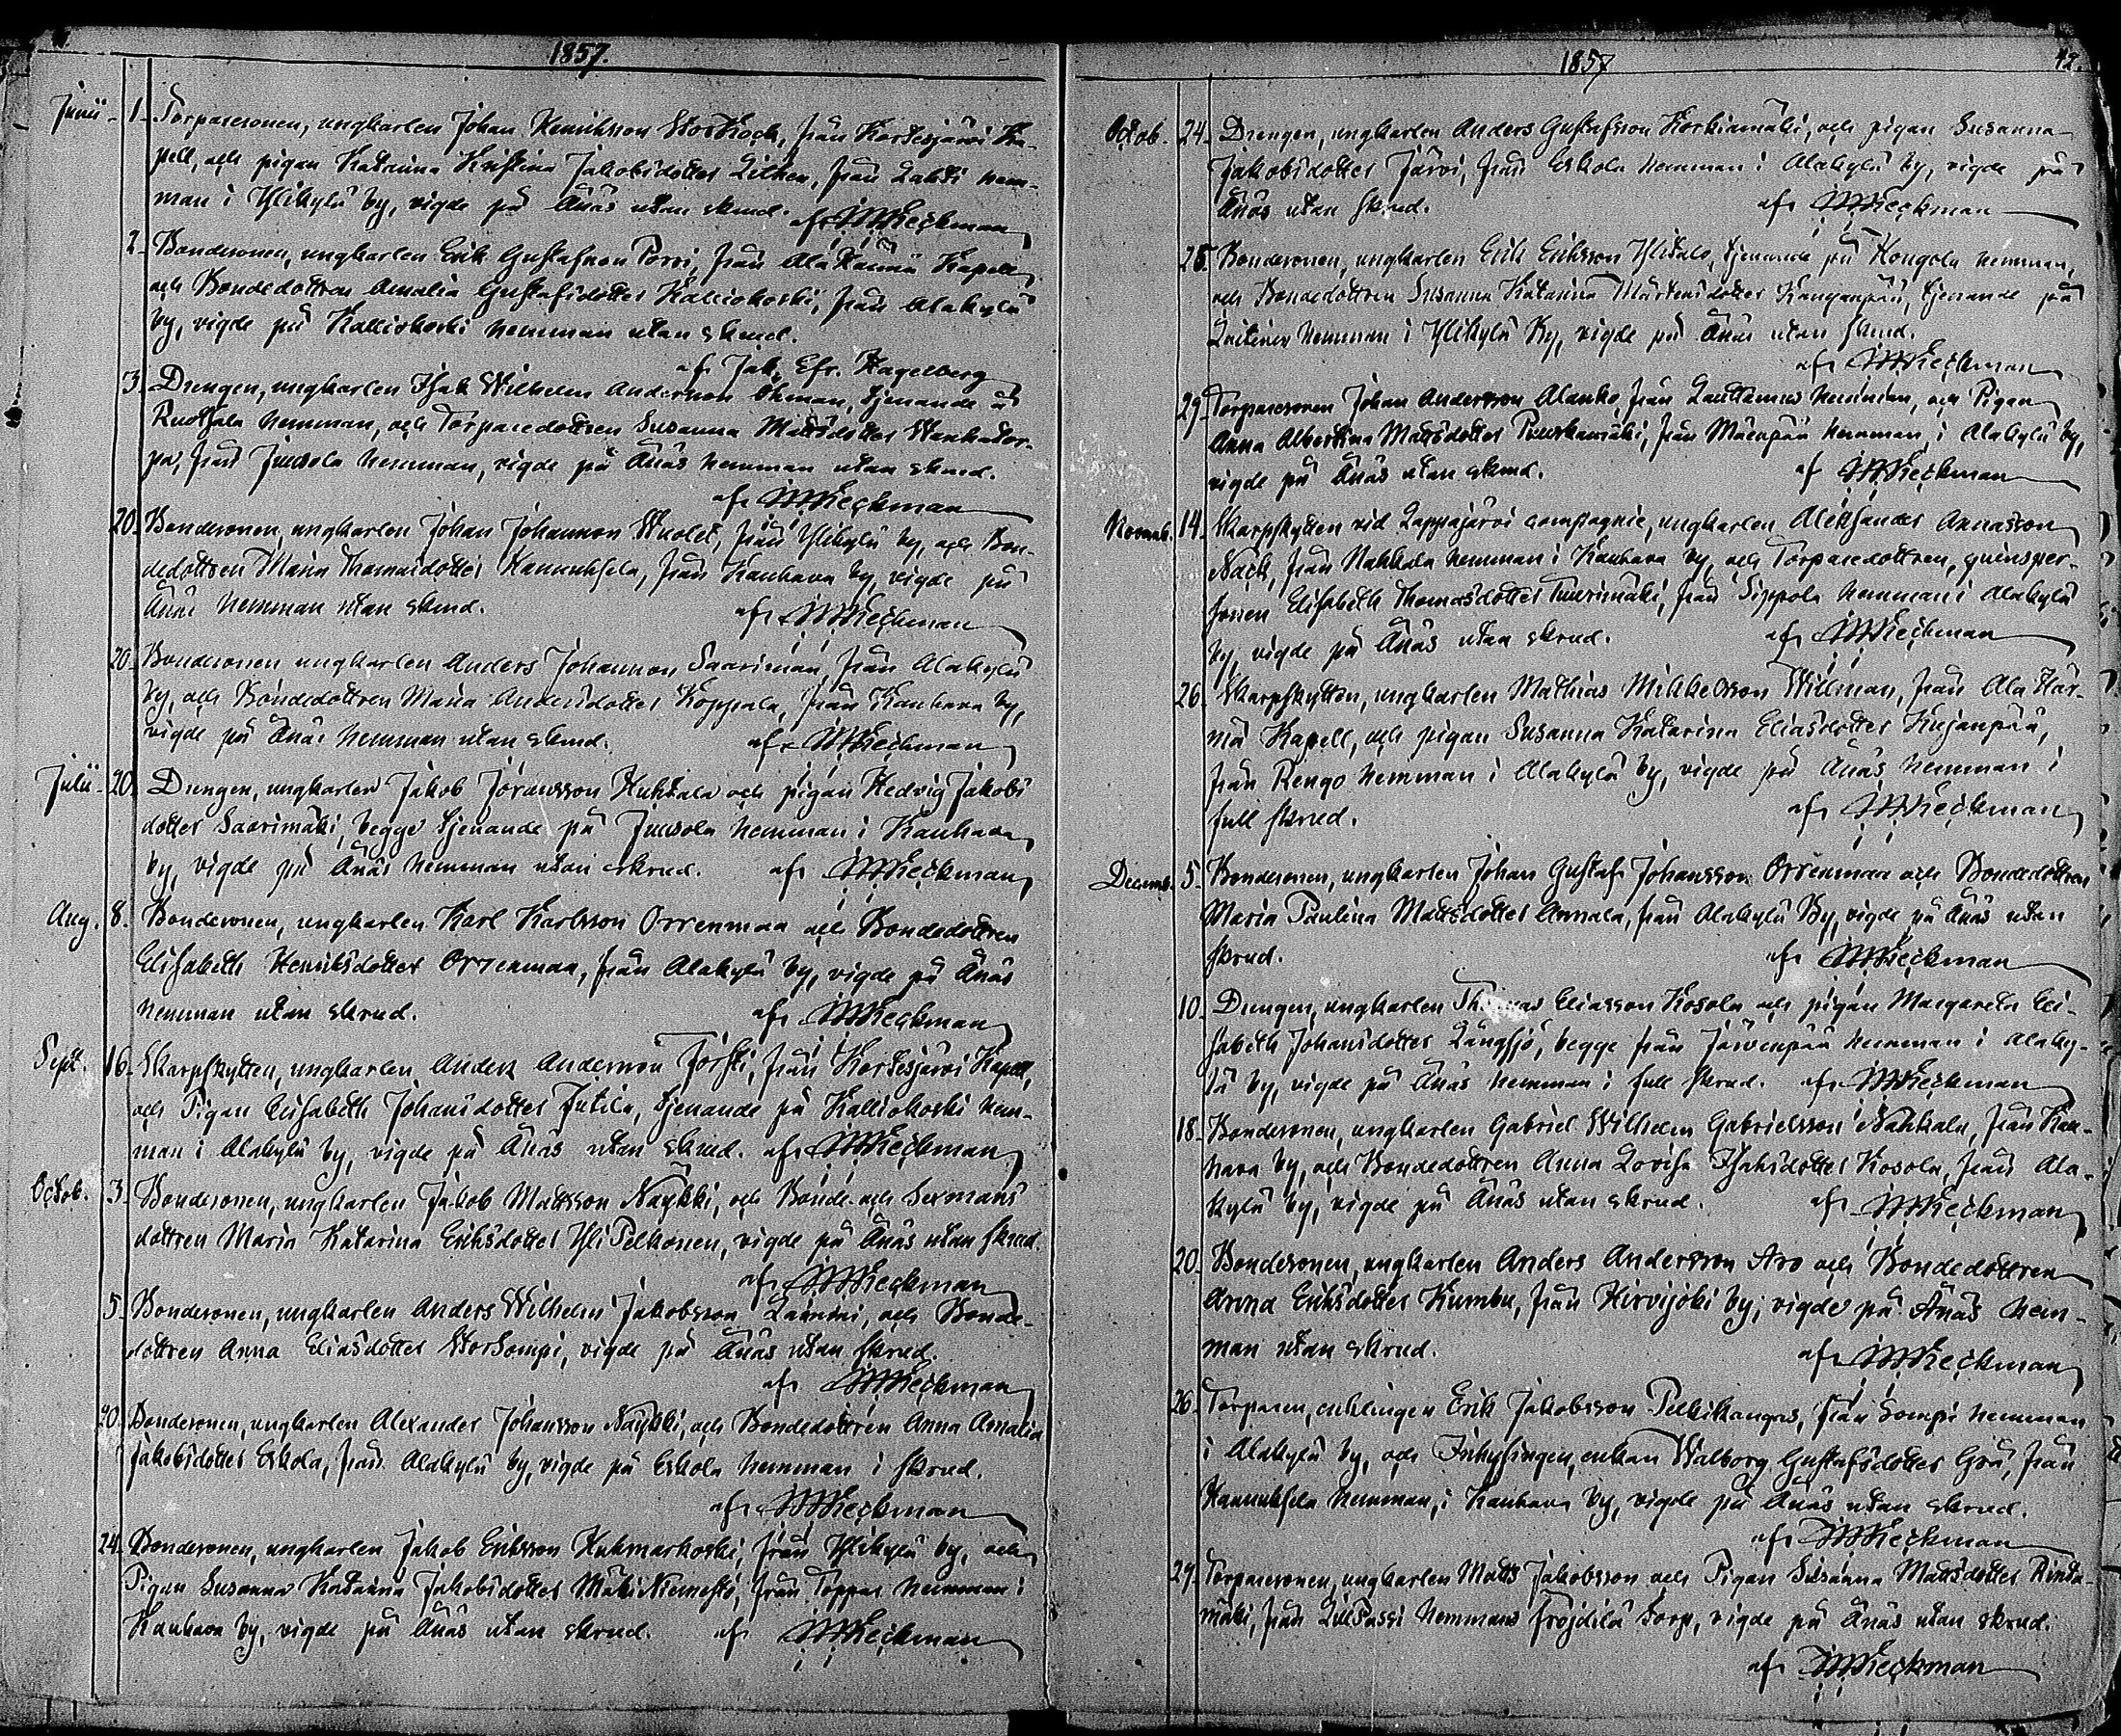 1857.
Junii - 1. Torparesonen, ungkarlen Johan Henriksson StorKock, från Kortesjärvi Ka-
pell, och pigan Katarina Kristina Jakobsdotter Lithen, från Lahti hem-
man i Ylikylä by, vigde på Ånäs utan skrud. af Heickman
2. Bondesonen, ungkarlen Erik Gustafsson Porri, från Ala Härmä Kapell
och Bondedottren Amalia Gustafsdotter Kalliokoski, från Alakylä
by, vigde på Kalliokoski hemman utan skrud.
af Jak. Efr. Hagelberg
3. Drengen, ungkarlen Isak Wilhelm Andersson Öhman, tjenande å
Ruotsala hemman, och Torparedottren Susanna Mattsdotter Wanhator-
pa, från Jussola hemman, vigde på Ånäs hemman utan skrud.
af Heickman
20. Bondesonen, ungkarlen Johan Johansson Wuolet, från Ylikylä by, och Bon-
dedottren Maria Thomasdotter Hannuksela, från Kauhava by, vigde på
Ånäs hemman utan skrud. af Heickman
20. Bondesonen ungkarlen Anders Johansson Saarimaa, från Alakylä
by, och Bondedottren Maria Andersdotter Koppala, från Kauhava by,
vigde på Ånäs hemman utan skrud. af Heickman
Julii - 20. Drengen, ungkarlen Jakob Göransson Huhtala och pigan Hedvig Jakobs
dotter Saarimäki, begge tjenande på Jussola hemman i Kauhava
by, vigde på Ånäs hemman utan skrud. af Heickman
Aug. 8. Bondesonen, ungkarlen Karl Karlsson Orrenmaa och Bondedottren
Elisabeth Henriksdotter Orrenmaa, från Alakylä by, vigde på Ånäs
hemman utan skrud. af Heickman
Sept. 16. Skarpskytten, ungkarlen Anders Andersson Försti, från Kortesjärvi Kapell,
och Pigan Elisabeth Johansdotter Jutila, tjenande på Kalliokoski hem-
man i Alakylä by, vigde på Ånäs utan skrud. af Heickman
Octob. 3. Bondesonen, ungkarlen Jakob Mattsson Näykki, och Bonde- och Sexmans
dottren Maria Katarina Eriksdotter Yli Pelkonen, vigde på Ånäs utan skrud.
af Heickman
5. Bondesonen, ungkarlen Anders Wilhelm Jakobsson Lammi, och Bonde-
dottren Anna Eliasdotter StorSompi, vigde på Ånäs utan skrud.
af Heickman
20. Bondesonen, ungkarlen Alexander Johansson Näykki, och Bondedottren Anna Amalia
Jakobsdotter Eskola, från Alakylä by, vigde på Eskola hemman i skrud.
af Heickman
24. Bondesonen, ungkarlen Jakob Eriksson Huhmarkoski, från Ylikylä by, och
Pigan Susanna Katarina Jakobsdotter MäkiNiemistö, från Toppar hemman i
Kauhava by, vigde på Ånäs utan skrud. af Heickman
1857
42.
Octob. 24. Drengen, ungkarlen Anders Gustafsson Korkiamäki, och pigan Susanna
Jakobsdotter Järvi, från Eskola hemman i Alakylä by, vigde på
Ånäs utan skrud. af Heickman
25. Bondesonen, ungkarlen Erik Eriksson Ylitalo, tjenande på Hongola hemman,
och Bondedottren Susanna Katarina Mårtensdotter Kangaspää, tjenande på
hemman i Ylikylä By, vigde på Ånäs utan skrud.
af Heickman
29. Torparesonen Johan Andersson Alanko, från hemman, och Pigan
Anna Albertina Mattsdotter Puuskamäki, från Mäenpää hemman, i Alakylä by,
vigde på Ånäs utan skrud. af Heickman
Novemb. 14. Skarpskytten vid Lappajärvi compagnie, ungkarlen Aleksander Annasson
Näck, från Nahkala hemman i Kauhava by, och Torparedottren, qvinsper-
sonen Elisabeth Thomasdotter Tuurimäki, från Sippola hemman i Alakylä
by, vigde på Ånäs utan skrud. af Heickman
26. Skarpskytten, ungkarlen Mathias Mikkelsson Willman, från Ala Här-
mä Kapell, och pigan Susanna Katarina Eliasdotter Kujanpää,
från Rengo hemman i Alakylä by, vigde på Ånäs hemman i
full skrud. af Heickman
Decemb. 5. Bondesonen, ungkarlen Johan Gustaf Johansson Orrenmaa och Bondedottren
Maria Paulina Mattsdotter Annala, från Alakylä By, vigde på Ånäs utan
skrud. af Heickman
10. Drengen, ungkarlen Thomas Eliasson Kosola och pigan Margareta Eli-
sabeth Johansdotter Långsjö, begge från Järvenpää hemman i Alaky-
lä by, vigde på Ånäs hemman i full skrud. af Heickman
18. Bondesonen, ungkarlen Gabriel Wilhelm Gabrielsson Nahkala, från Kau-
hava by, och Bondedottren Anna Lovisa Isaksdotter Kosola, från Ala-
kylä by, vigde på Ånäs utan skrud. af Heickman
20. Bondesonen, ungkarlen Anders Andersson Aro och Bondedottren
Anna Eriksdotter Kumbu, från Hirvijoki by, vigde på Ånäs hem-
man utan skrud. af Heickman
26. Torparen, enklingen Erik Jakobsson Pelkikangas, från Sompi hemman
i Alakylä by, och Inhysingen, enkan Walborg Gustafsdotter Grå, från
Hannuksela hemman, i Kauhava by, vigde på Ånäs utan skrud.
af Heickman
29. Torparesonen, ungkarlen Matts Jakobsson och Pigan Susanna Mattsdotter Rinta-
mäki, från LillPassi hemmans Fröjdilä torp, vigde på Ånäs utan skrud.
af Heickman